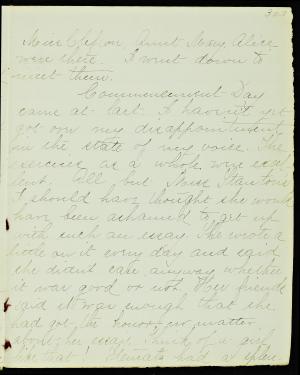 Miss Clifford Aunt Mary Alice
were there. I went down to
meet them.
Commencement Day
came at last. I haven't yet
got over my disappointment
in the state of my voice. The
exercises as a whole were excel
lent. All but Miss Stantons
I should have thought she would
have been ashamed to get up
with such an essay. She wrote a
little on it every day and said
she didnt care anyway whether
it was good or not. Her friends
said it was enough that she
had got the honor, no matter
about her essay. Think of a girl
like that! had a splen-